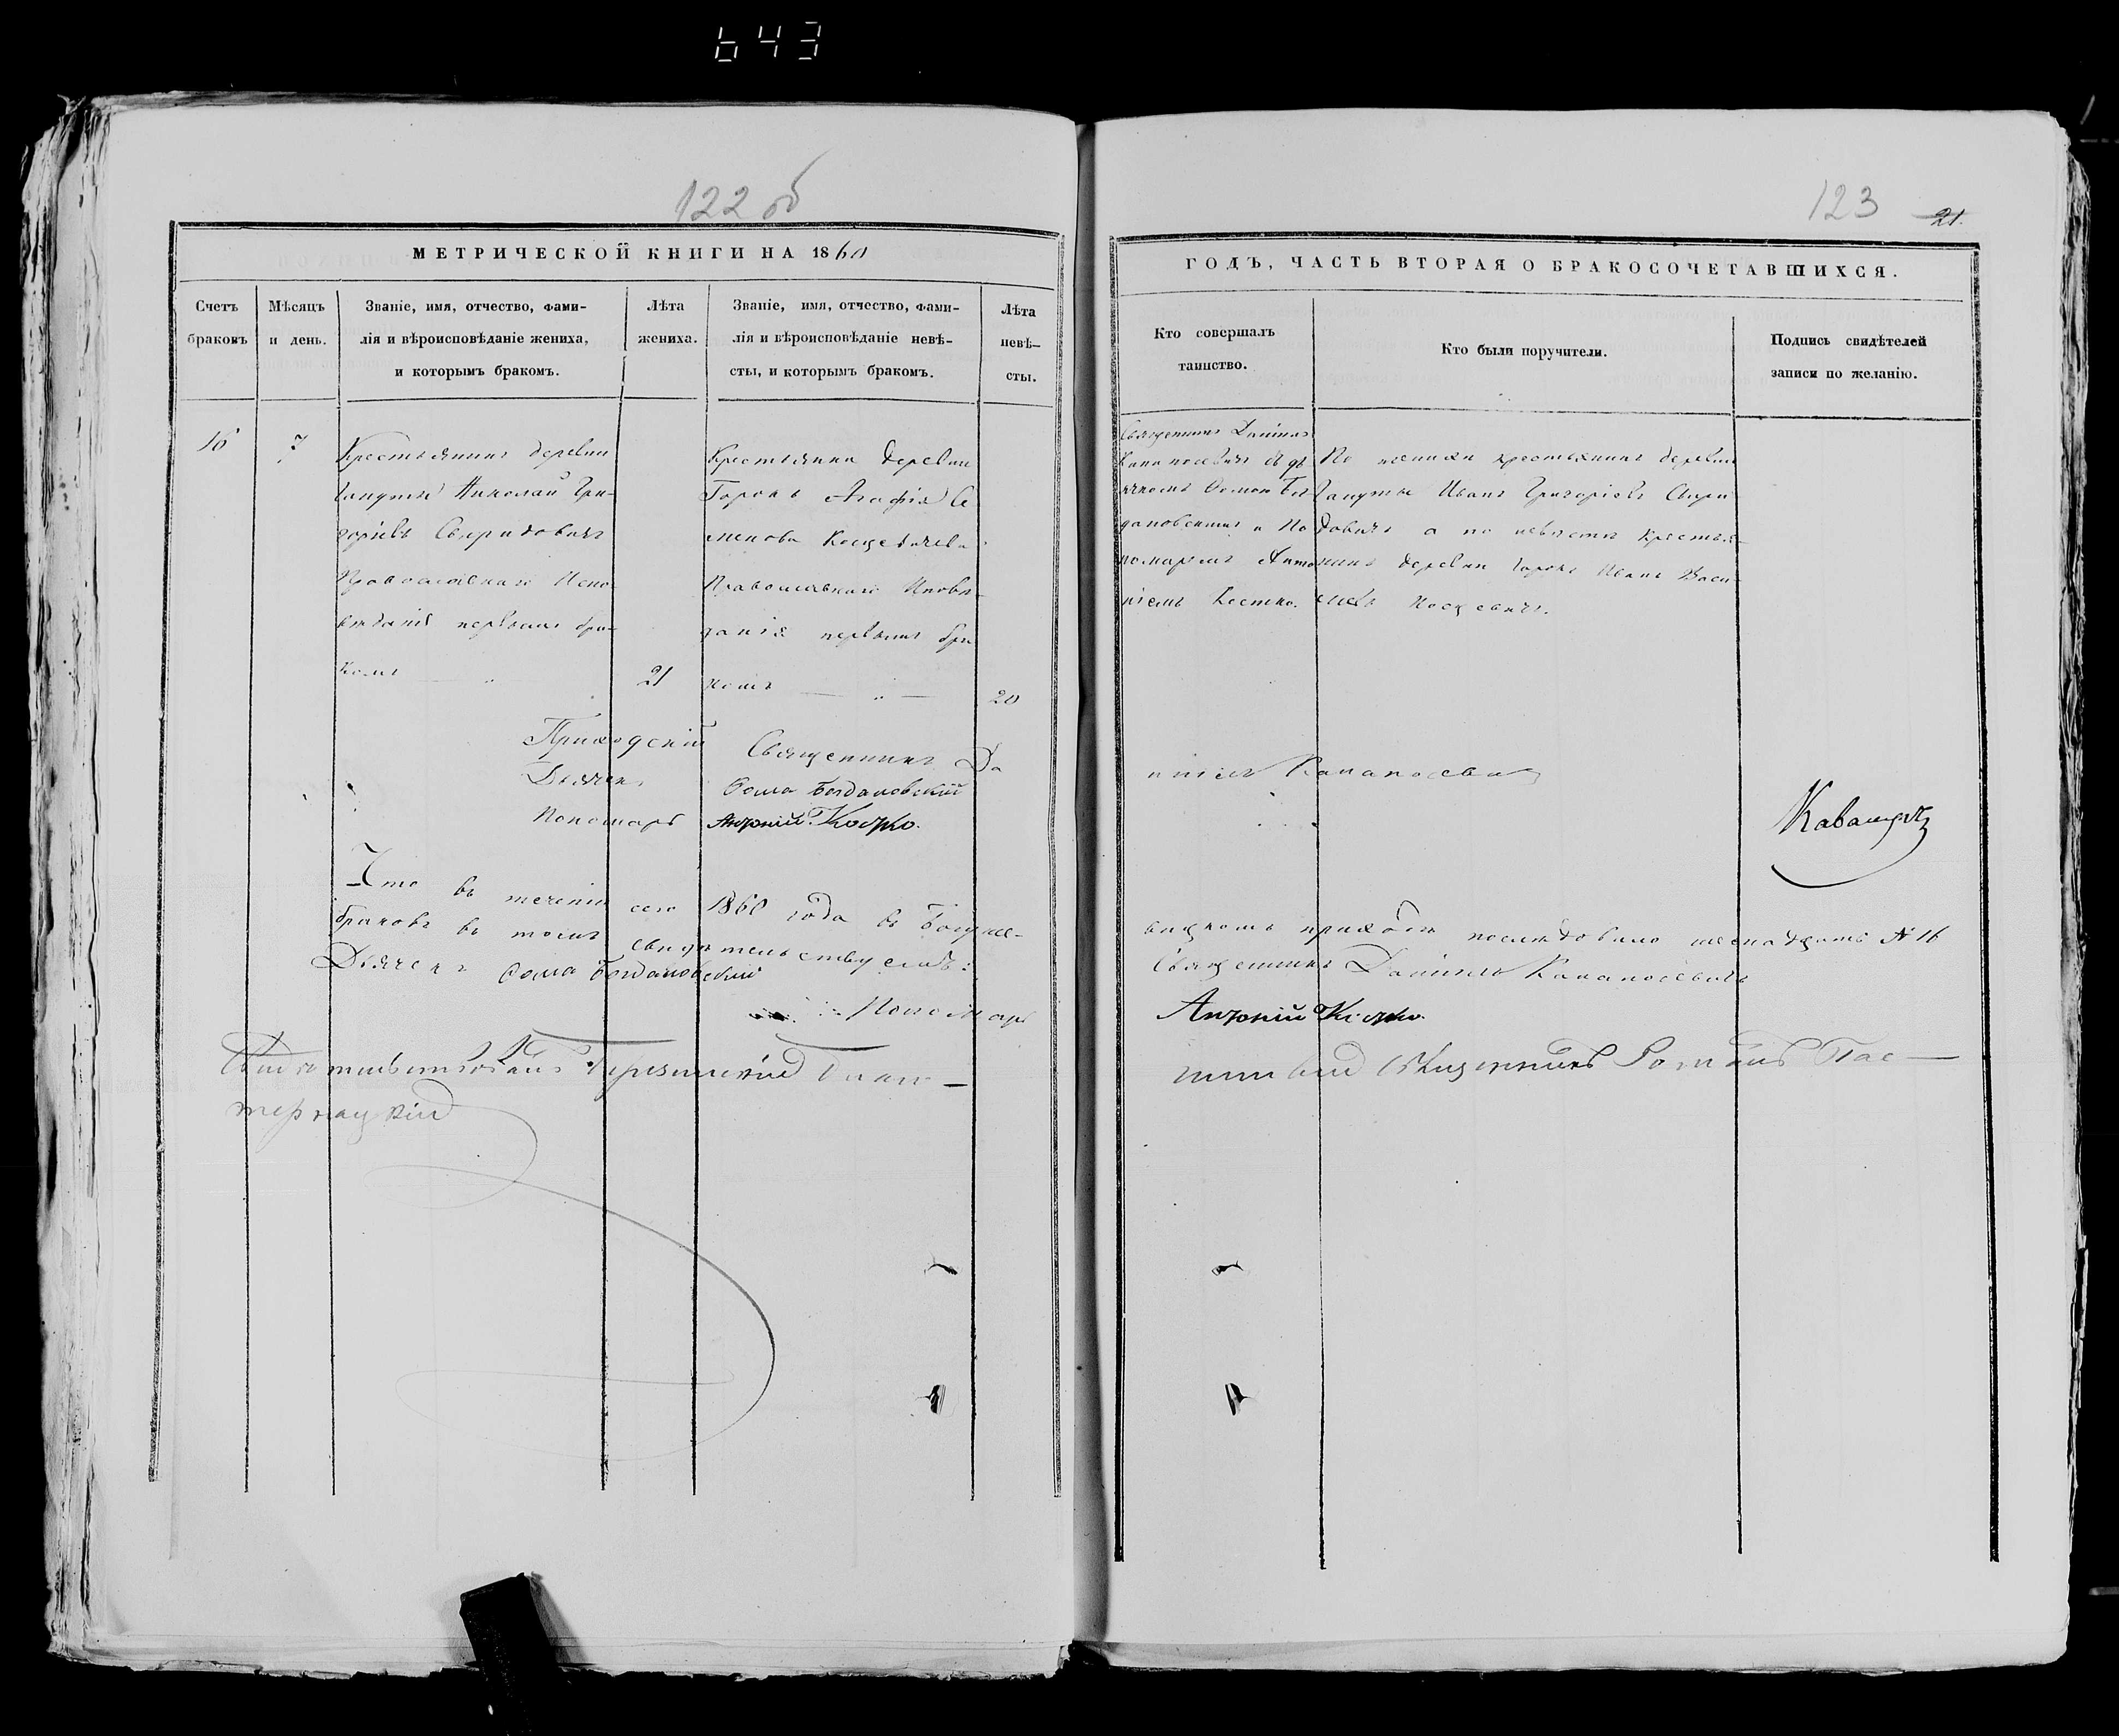 643
122 об
МЕТРИЧЕСКОЙ КНИГИ НА 1860
Счетъ браковъ
Мѣсяцъ и день.
Званіе, имя, отчество, фами-
лія и вѣроисповѣданіе жениха,
и которымъ бракомъ.
Лѣта
жениха.
Званіе, имя, отчество, фами-
лія и вѣроисповѣданіе невѣ-
сты, и которымъ бракомъ.
Лѣта
невѣ-
сты.
16
7
Крестьянинъ деревни
Николай Гри-
горіевъ Свиридовичъ
Православнаго Испо-
вѣданія первымъ бра-
комъ
21
Крестьянка деревни
Горокъ Агафія Се
менова
Православнаго Исповѣ-
данія первымъ бра
комъ
20
Приходскій Священникъ Да
Дьячекъ Ѳома Богдановскій
Пономарь Антоній Костко.
Что въ теченіи сего 1860 года въ
браковъ въ томъ свидѣтельствуемъ:
Дьячекъ Ѳома Богдановскій
Пономарь
123 21.
ГОДЪ, ЧАСТЬ ВТОРАЯ О БРАКОСОЧЕТАВШИХСЯ.
Кто совершалъ
таинство.
Кто были поручители.
Подпись свидѣтелей
записи по желанію.
Священникъ Даніилъ
съ дь
ячкомъ Ѳомою Бог
дановскимъ и По
номаремъ Анто
ніемъ Костко.
По женихѣ крестьянинъ деревни
Иванъ Григоріевъ Свири
довичъ а по невѣстѣ крестья-
нинъ деревни Горокъ Иванъ Васи-
льевъ
ніилъ
приходѣ послѣдовало шеснадцать № 16
Священникъ Даніилъ
Антоній Костко
Священникъ